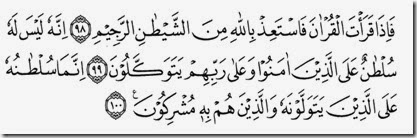 فَإِذَا قَرَأْتَ الْقُرْاٰنَ فَاسْتَعِذْ بِاللّٰهِ مِنَ الشَّيْطٰنِ الرَّجِيْمِ ﴿٩٨﴾ اِنَّهٗ لَيْسَ لَهٗ
سُلْطٰنٌ عَلَى الَّذِيْنَ اٰمَنُوْا وَعَلٰى رَبِّهِمْ يَتَوَكَّلُوْنَ ﴿٩٩﴾ اِنَّمَا سُلْطٰنُهٗ
عَلَى الَّذِيْنَ يَتَوَلَّوْنَهٗ وَالَّذِيْنَ هُمْ بِهٖ مُشْرِكُوْنَ ࣖ ﴿١٠٠﴾